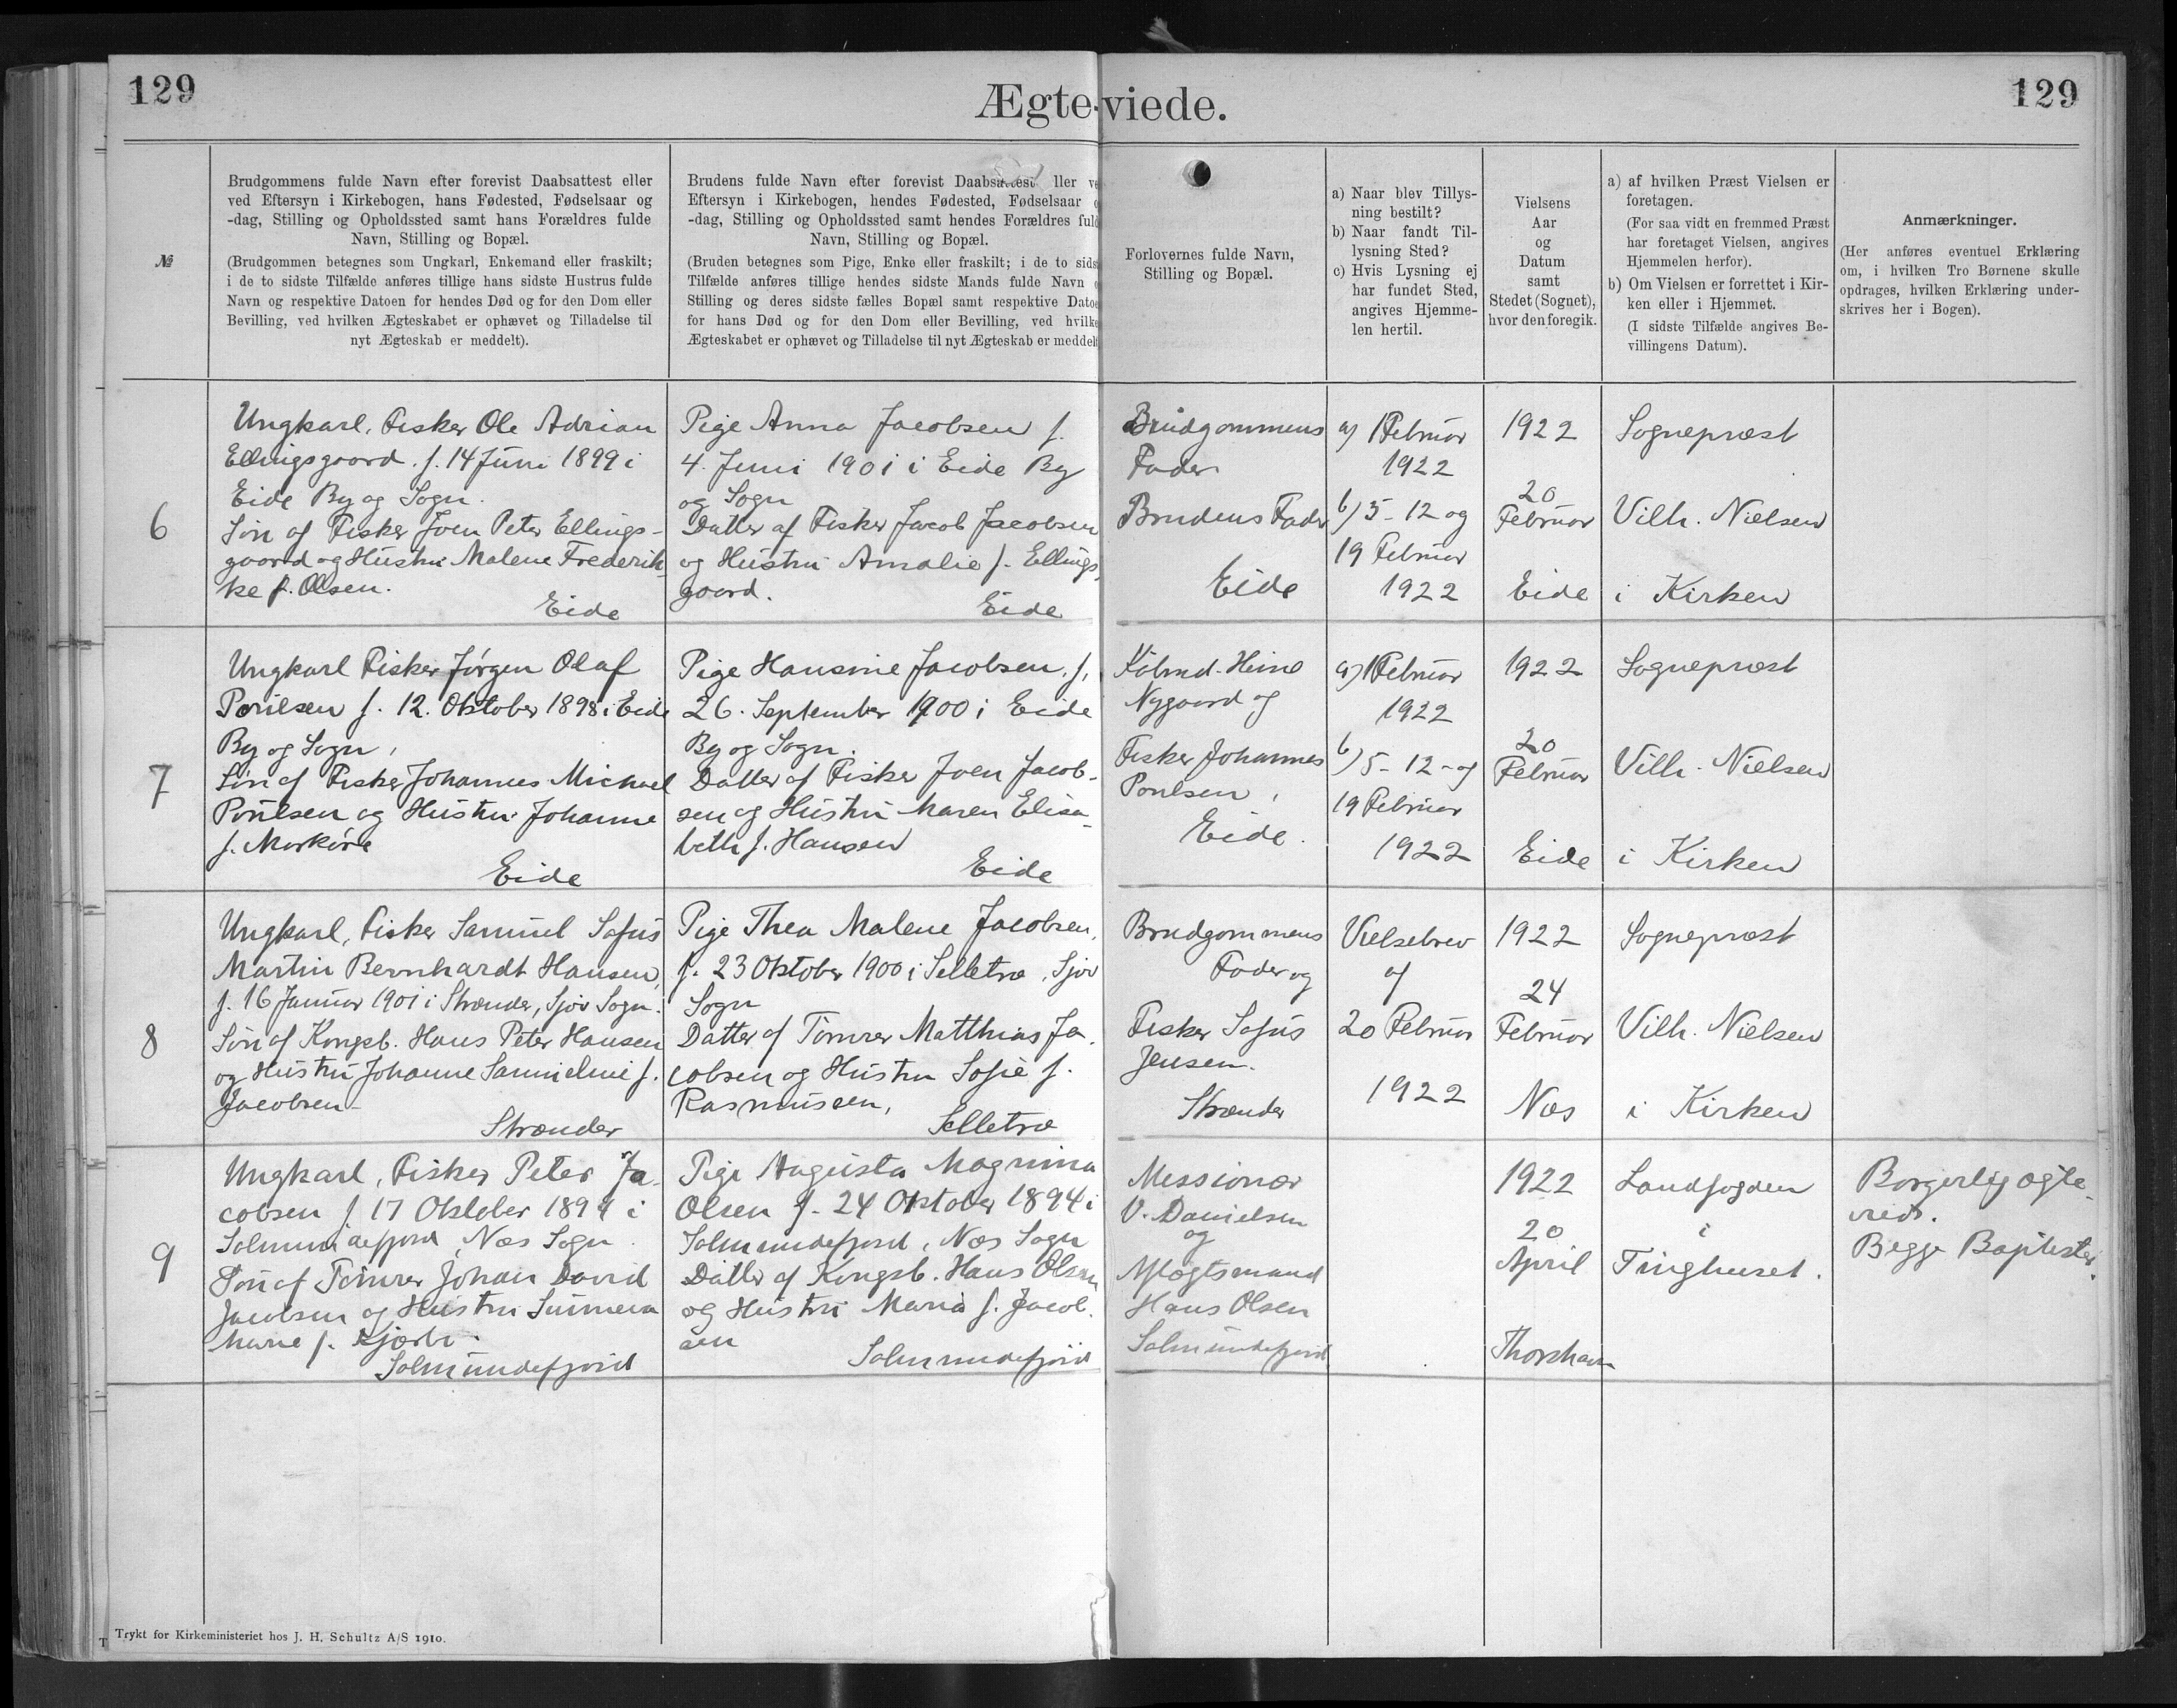 129
129
Ægteviede.
№
Brudgommens fulde Navn efter forevist Daabsattest eller
ved Eftersyn i Kirkebogen, hans Fødested, Fødselsaar og
-dag, Stilling og Opholdssted samt hans Forældres fulde
Navn, Stilling og Bopæl.
(Brudgommen betegnes som Ungkarl, Enkemand eller fraskilt;
i de to sidste Tilfælde anføres tillige hans sidste Hustrus fulde
Navn og respektive Datoen for hendes Død og for den Dom eller
Bevilling, ved hvilken Ægteskabet er ophævet og Tilladelse til
nyt Ægteskab er meddelt).
Brudens fulde Navn efter forevist Daabsattest ller ve
Eftersyn i Kirkebogen, hendes Fødested, Fødselsaar o
-dag, Stilling og Opholdssted samt hendes Forældres fuld
Navn, Stilling og Bopæl.
(Bruden betegnes som Pige, Enke eller fraskilt; i de to sids
Tilfælde anføres tillige hendes sidste Mands fulde Navn o
Stilling og deres sidste fælles Bopæl samt respektive Datoe
for hans Død og for den Dom eller Bevilling, ved hvilke
Ægteskabet er ophævet og Tilladelse til nyt Ægteskab er meddelt
Forlovernes fulde Navn,
Stilling og Bopæl.
a) Naar blev Tillys-
ning bestilt?
b) Naar fandt Til-
lysning Sted?
c) Hvis Lysning ej
har fundet Sted,
angives Hjemme-
len hertil.
Vielsens
Aar
og
Datum
samt
Stedet (Sognet),
hvor den foregik.
a) af hvilken Præst Vielsen er
foretagen.
(For saa vidt en fremmed Præst
har foretaget Vielsen, angives
Hjemmelen herfor).
b) Om Vielsen er forrettet i Kir-
ken eller i Hjemmet.
(I sidste Tilfælde angives Be-
villingens Datum).
Anmærkninger.
(Her anføres eventuel Erklæring
om, i hvilken Tro Børnene skulle
opdrages, hvilken Erklæring under-
skrives her i Bogen).
6
Ungkarl, Fisker Ole Adrian
Ellingsgaard. f. 14 Juni 1899 i
Eide By og Sogn.
Søn af Fisker Joen Peter Ellings-
gaard og Hustru Malene Frederik-
ke f. Olsen.
Eide
Pige Anna Jacobsen f.
4. Juni 1901 i Eide By
og Sogn
Datter af Fisker Jacob Jacobsen
og Hustru Amalie f. Ellings-
gaard.
Eide
Brudgommens
Fader
Brudens Fader
Eide
a) 1 Februar
1922
b) 5-12 og
19 Februar
1922
1922
20
Februar
Eide
Sognepræst
Vilh. Nielsen
i Kirken
7
Ungkarl Fisker Jørgen Olaf
Poulsen f. 12. Oktober 1898 i Eide
By og Sogn,
Søn af Fisker Johannes Michael
Poulsen og Hustru Johanne
f. Morkøre
Eide
Pige Hansine Jacobsen. f.
26. September 1900 i Eide
By og Sogn.
Datter af Fisker Joen Jacob-
sen og Hustru Maren Elisa-
beth f. Hansen
Eide
Købmd. Heine
Nygaard og
Fisker Johannes
Poulsen,
Eide.
a) 1 Februar
1922
b) 5-12- og
19 Februar
1922
1922
20
Februar
Eide
Sognepræst
Vilh. Nielsen
i Kirken
8
Ungkarl, Fisker Samuel Sofus
Martin Bernhardt Hansen,
f. 16 Januar 1901 i Strænder, Sjov Sogn.
Søn af Kongsb. Hans Peter Hansen
og Hustru Johanne Samueline f.
Jacobsen-
Strænder
Pige Thea Malene Jacobsen,
f. 23 Oktober 1900 i Selletræ, Sjov
Sogn
Datter af Tømrer Matthias Ja-
cobsen og Hustru Sofie f.
Rasmussen,
Selletræ
Brudgommens
Fader og
Fisker Sofus
Jensen.
Strænder
Vielsebrev
af
20 Februar
1922
1922
24
Februar
Næs
Sognepræst
Vilh. Nielsen
i Kirken
9
Ungkarl, Fisker Peter Ja-
cobsen f 17 Oktober 1894 i
Solmundefjord, Næs Sogn.
Søn af Tømrer Johan David
Jacobsen og Hustru Sunneva
Marie f. Kjærbo.
Solmundefjord
Pige Augusta Magnina
Olsen f. 24 Oktober 1894 i
Solmundefjord, Næs Sogn
Datter af Kongsb. Hans Olsen
og Hustru Maria f. Jacob-
sen
Solmundefjord
Missionær
V. Danielsen
og
Aftægtsmand
Hans Olsen
Solmundefjord
1922
20
April
Thorshavn
Landfogden
i
Tinghuset.
Borgerlig ægte-
vied.
Begge Baptister.
Trykt for Kirkeministeriet hos J. H. Schultz A/S 1910.